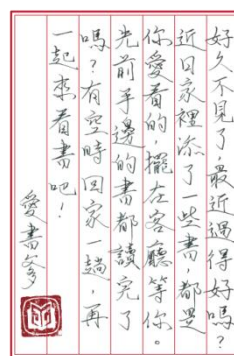 好久不見了，最近過得好嗎？
近日家裡添了一些書，都是
你愛看的，擺在客廳等你。
先前手邊的書都讀完了
嗎？有空時回家一趟，再
一起來看書吧！
愛書爹